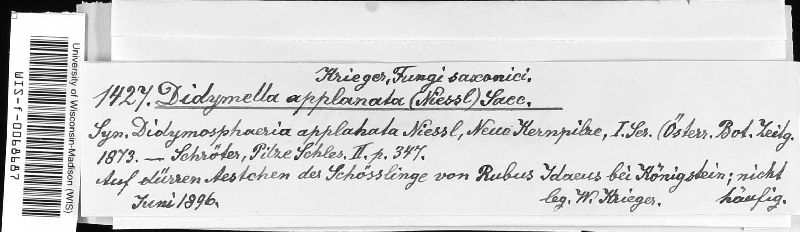 University of Wisconsin-Madison (WIS)
WIS-f-0068687
Krieger, Fungi saxonici.
1427. Didymella applanata (Niessl) Sacc.
Syn. Didymosphaeria applanata Niessl, Neue Kernpilze, I. Ser. (Österr. Bot. Zeitg.
1873. — Schröter, Pilze Schles. II. p. 347.
Auf dürren Aestchen der Schösslinge von Rubus Idaeus bei Königstein; nicht
Juni 1896. leg. W. Krieger. häufig.